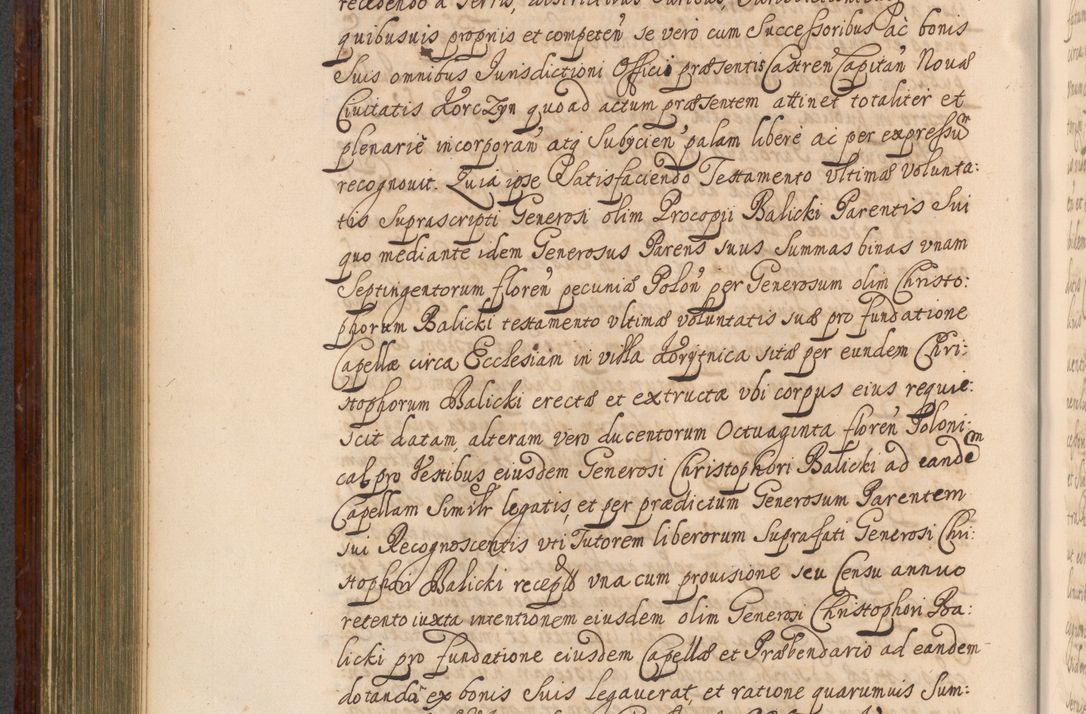 recedendo a Terris, districtibus
quibusuis proprijs et competeñ se vero cum Successoribus ac bonis
Suis omnibus Jurisdictioni Officij præsentis Castreñ Capitañ Nouæ
Ciuitatis Korczyn quoad actum præsentem attinet totaliter et
plenariè incorporañ atq Subijcieñ palam liberè ac per expressum
recognouit. Quia ipse Satisfaciendo Testamento vltimæ volunta:
tis Suprascripti Generosi olim Procopij Balicki Parentis Sui
quo mediante idem Generosus Parens suus Summas binas vnam
Septingentorum floreñ pecuniæ Poloñ per Generosum olim Christo:
phorum Balicki testamento vltimæ voluntatis suæ pro fundatione
Capellæ circa Ecclesiam in villa Korytnica sitæ per eundem Chri:
stophorum Balicki erectæ et extructæ vbi corpus eius requie:
scit datam, alteram vero ducentorum Octuaginta floreñ Poloni:
cal pro Vestibus eiusdem Generosi Christophori Balicki ad eandem
Capellam Similr legatis, et per prædictum Generosum Parentem
sui Recognoscentis vti Tutorem liberorum Suprafati Generosi Chri:
stophori Balicki receptas vna cum prouisione seu Censu annuo
retento iuxta intentionem eiusdem olim Generosi Christophori Ba:
licki pro fundatione eiusdem Capellæ et Præbendario ad eandem
dotandā ex bonis Suis legauerat, et ratione quarumuis Sum: